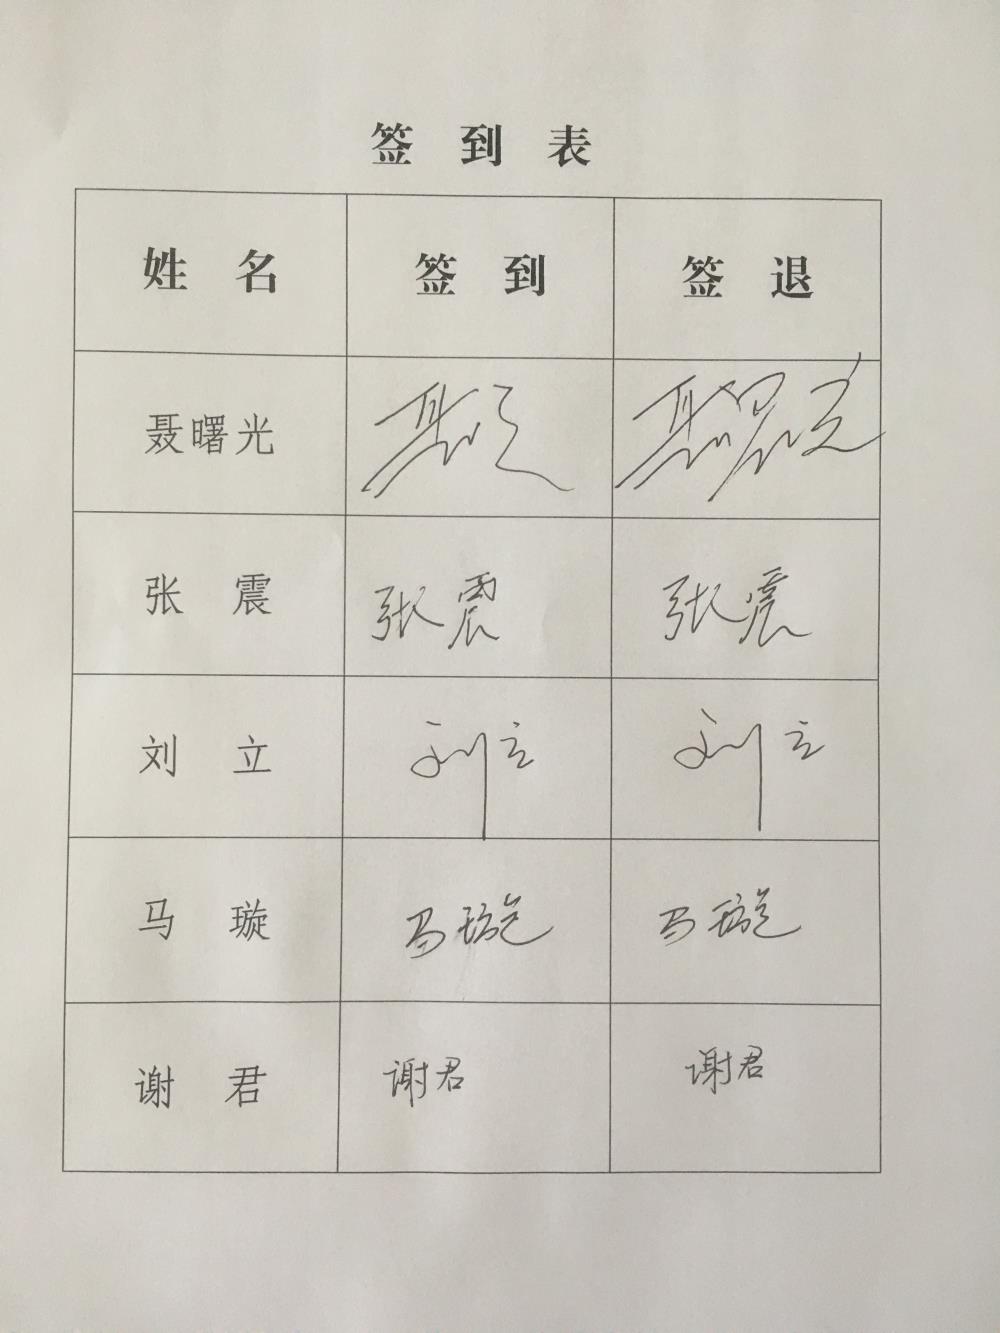 签到表
姓名 签到 签退
聂曙光
张震 张震 张震
刘立 刘立 刘立
马璇 马璇 马璇
谢君 谢君 谢君